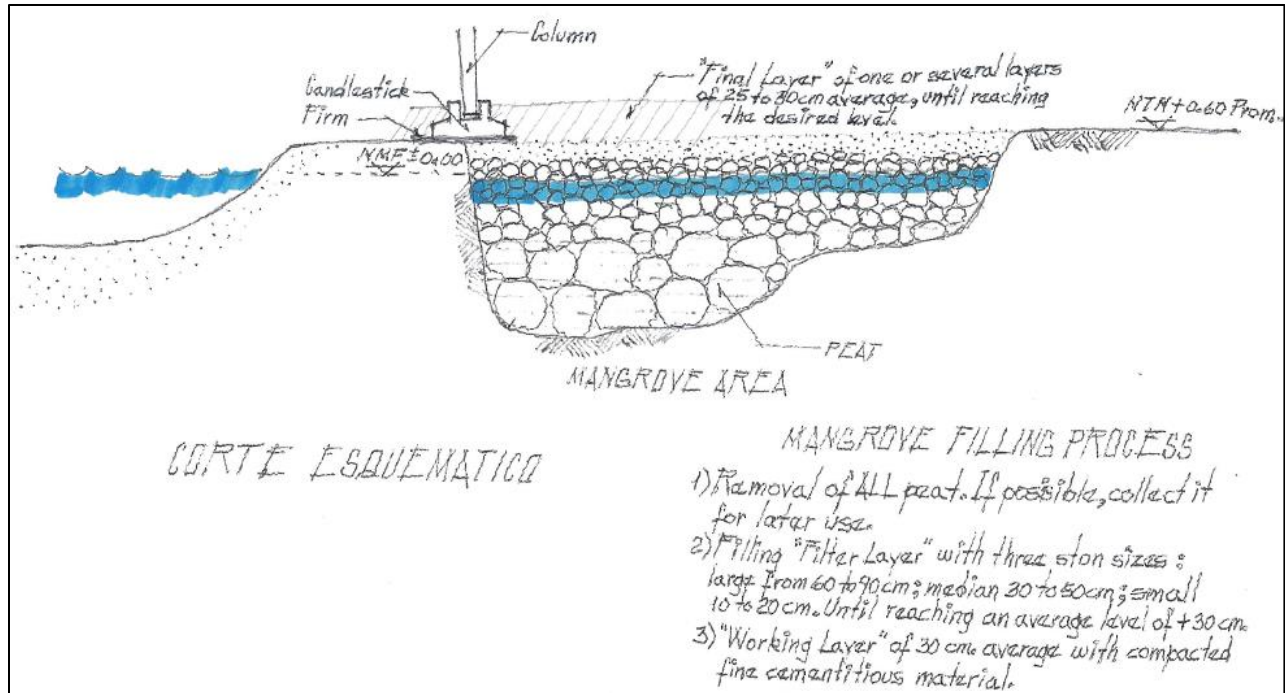 Column
"Final Layer" of one or several layers
of 25 to 30cm average, until reaching
the desired level.
Candlestick
Firm
NTN+0.60 Prom.
NMF±0.00
PEAT
MANGROVE AREA
CORTE ESQUEMATICO
MANGROVE FILLING PROCESS
1) Removal of ALL peat. If possible, collect it
for later use.
2) Filling "Filter Layer" with three ston sizes:
large from 60 to 90cm; median 30 to 50cm; small
10 to 20cm. Until reaching an average level of +30cm.
3) "Working Layer" of 30 cm. average with compacted
fine cementitious material.